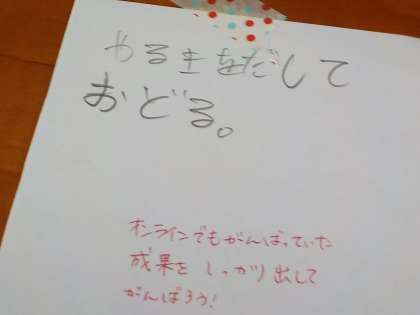 やるきをだして
おどる。
オンラインでもがんばっていた
成果を しっかり出して
がんばろう!